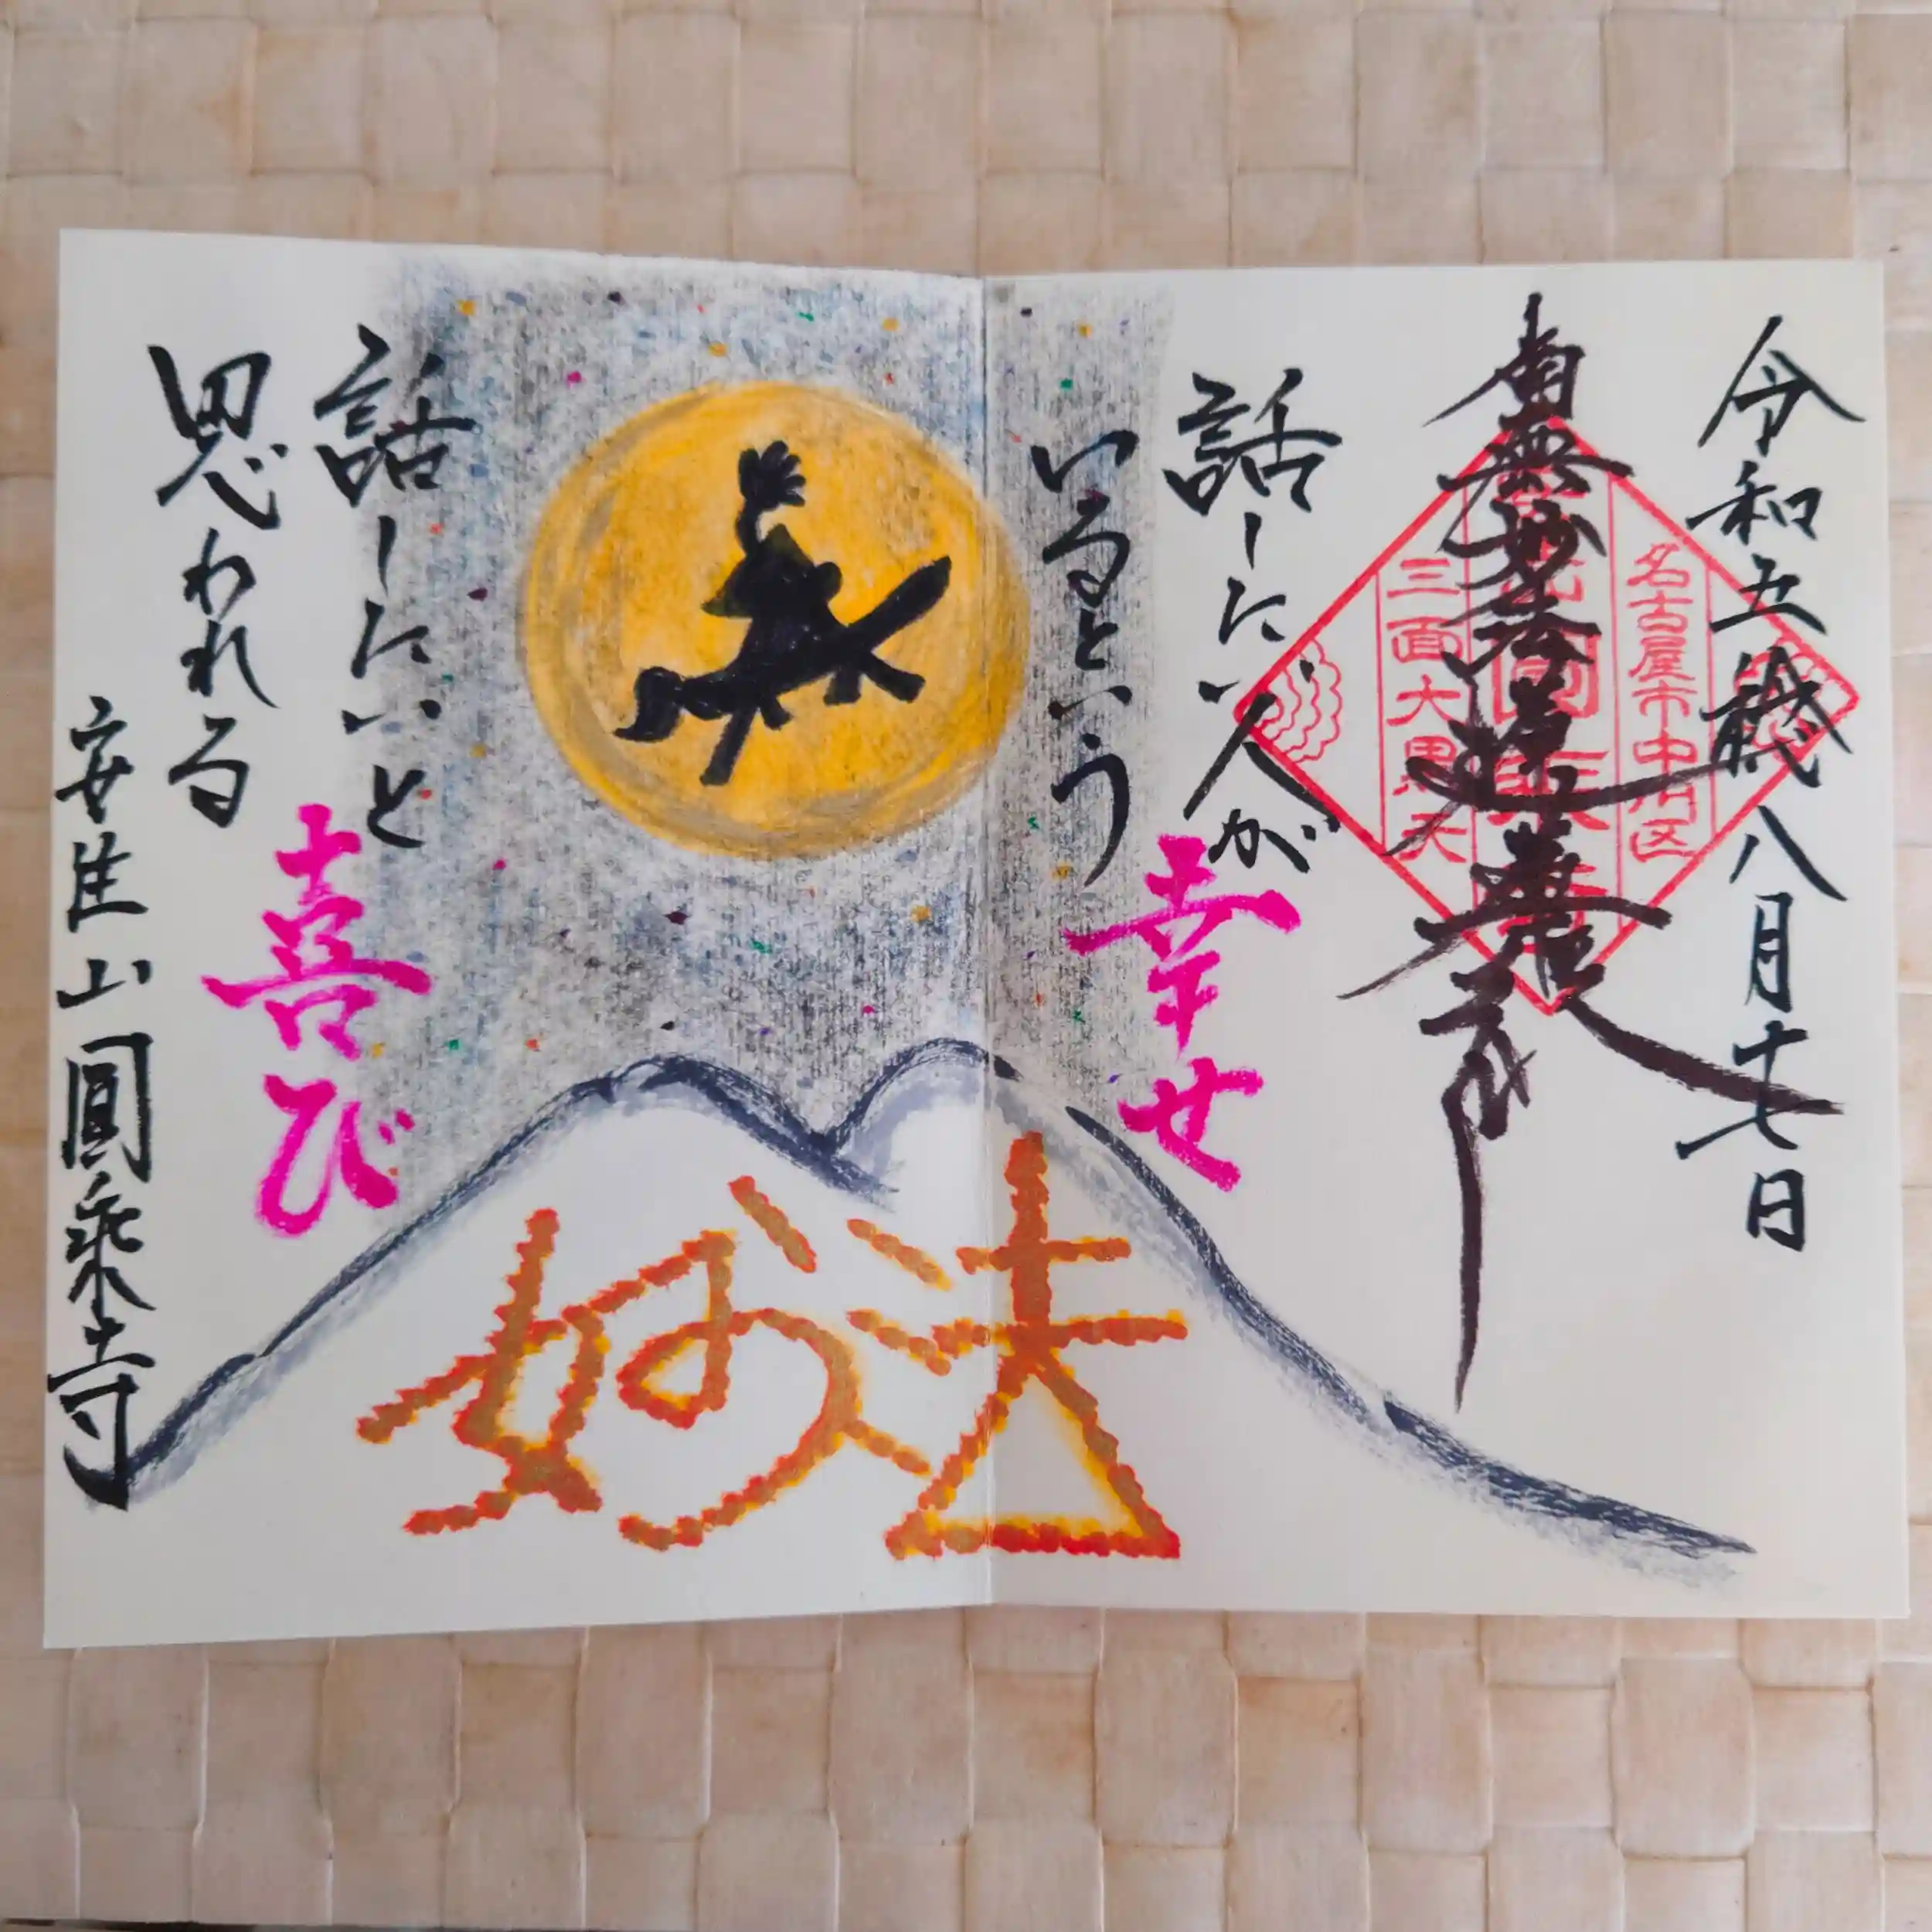 令和五歳八月十七日
南無妙法蓮華経
名古屋市中区
三面大黒天
話したい人が
いるという
幸せ
話したいと
思われる
喜び
妙法
安住山圓乘寺